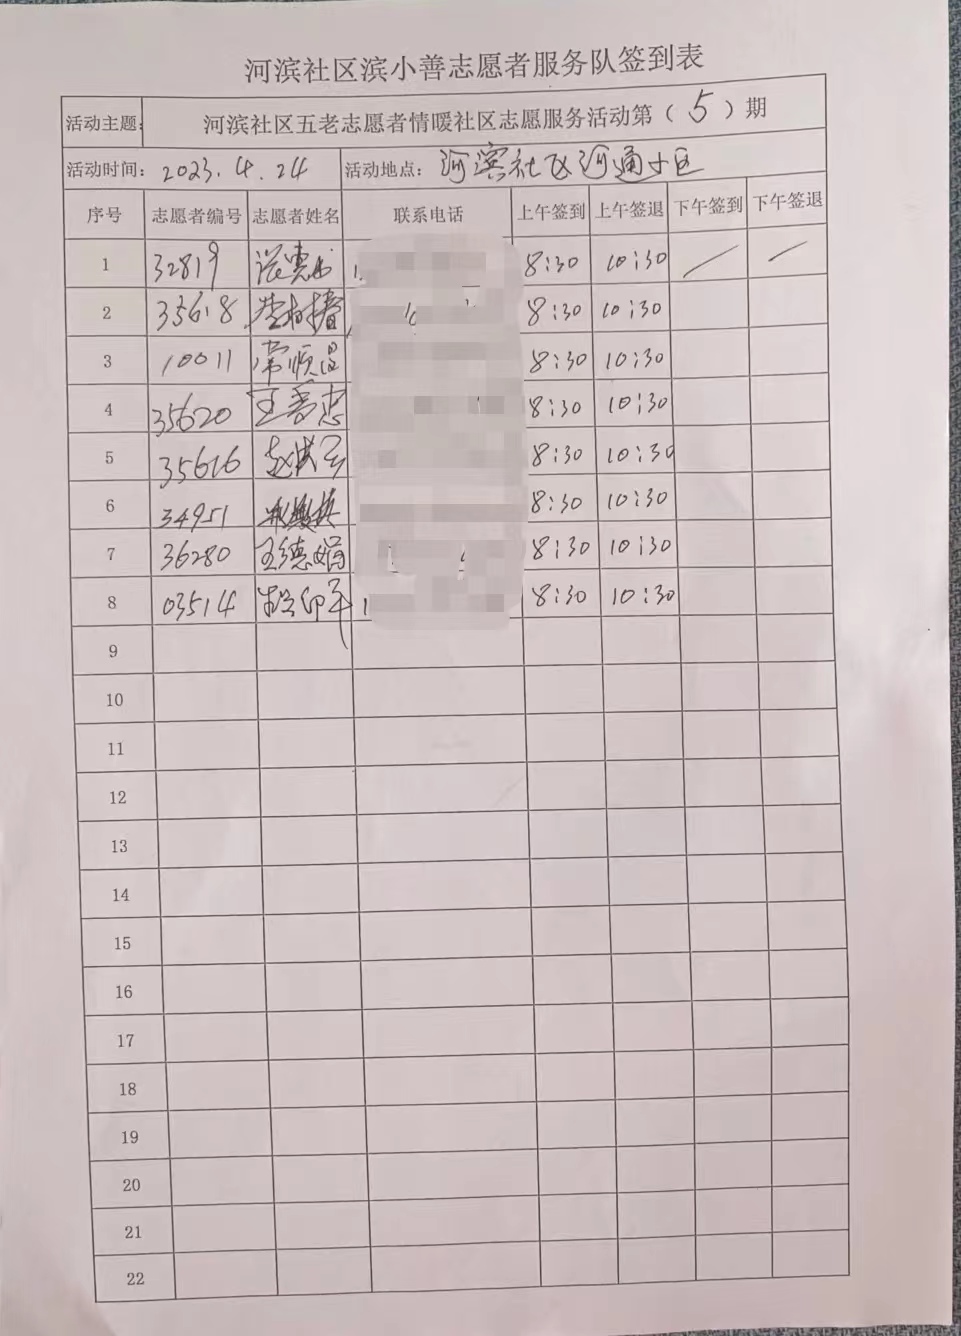 河滨社区滨小善志愿者服务队签到表
活动主题: 河滨社区五老志愿者情暖社区志愿服务活动第（5）期
活动时间: 2023.4.24 活动地点: 河滨社区河通小区
序号 志愿者编号 志愿者姓名 联系电话 上午签到 上午签退 下午签到 下午签退
1 32819 8:30 10:30
2 35618 8:30 10:30
3 10011 常顺昌 8:30 10:30
4 35620 王秀忠 8:30 10:30
5 35616 8:30 10:30
6 34951 8:30 10:30
7 36280 王德娟 8:30 10:30
8 03514 8:30 10:30
9
10
11
12
13
14
15
16
17
18
19
20
21
22